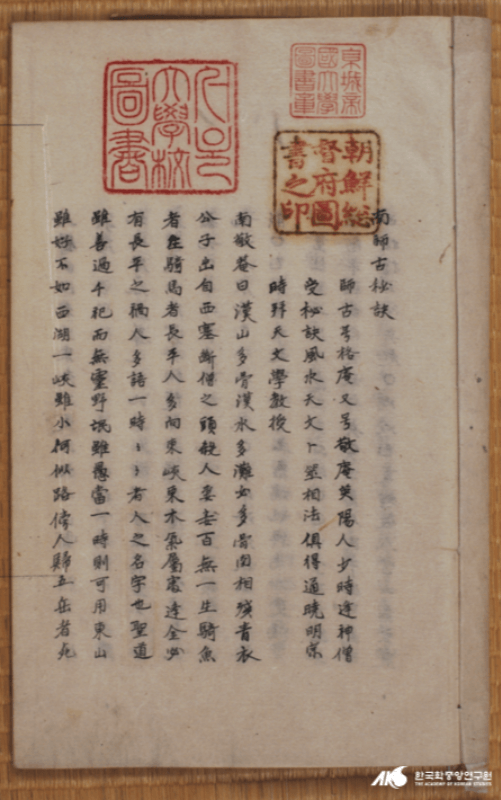 京城帝國大學圖書章
大學校圖書
朝鮮總督府圖書之印
南師古秘訣
師古号格庵又号敬庵英陽人少時逢神僧
受秘訣風水天文卜筮相法俱得通曉明宗
時拜天文學教授
南敬菴曰漢山多骨漢水多灘女多骨肉相殘青衣
公子出自西塞斬僧之頭人百無一生騎魚
者生騎馬者長平人多向東峽東木氣屬逢金必
有長平之禍人多語一時〻〻者人之名字也聖道
雖善過千祀而無靈野氓雖愚當一時則可用東山
雖好不如西湖一峽雖小何似路傍人歸五岳者死
AKS 한국학중앙연구원
THE ACADEMY OF KOREAN STUDIES